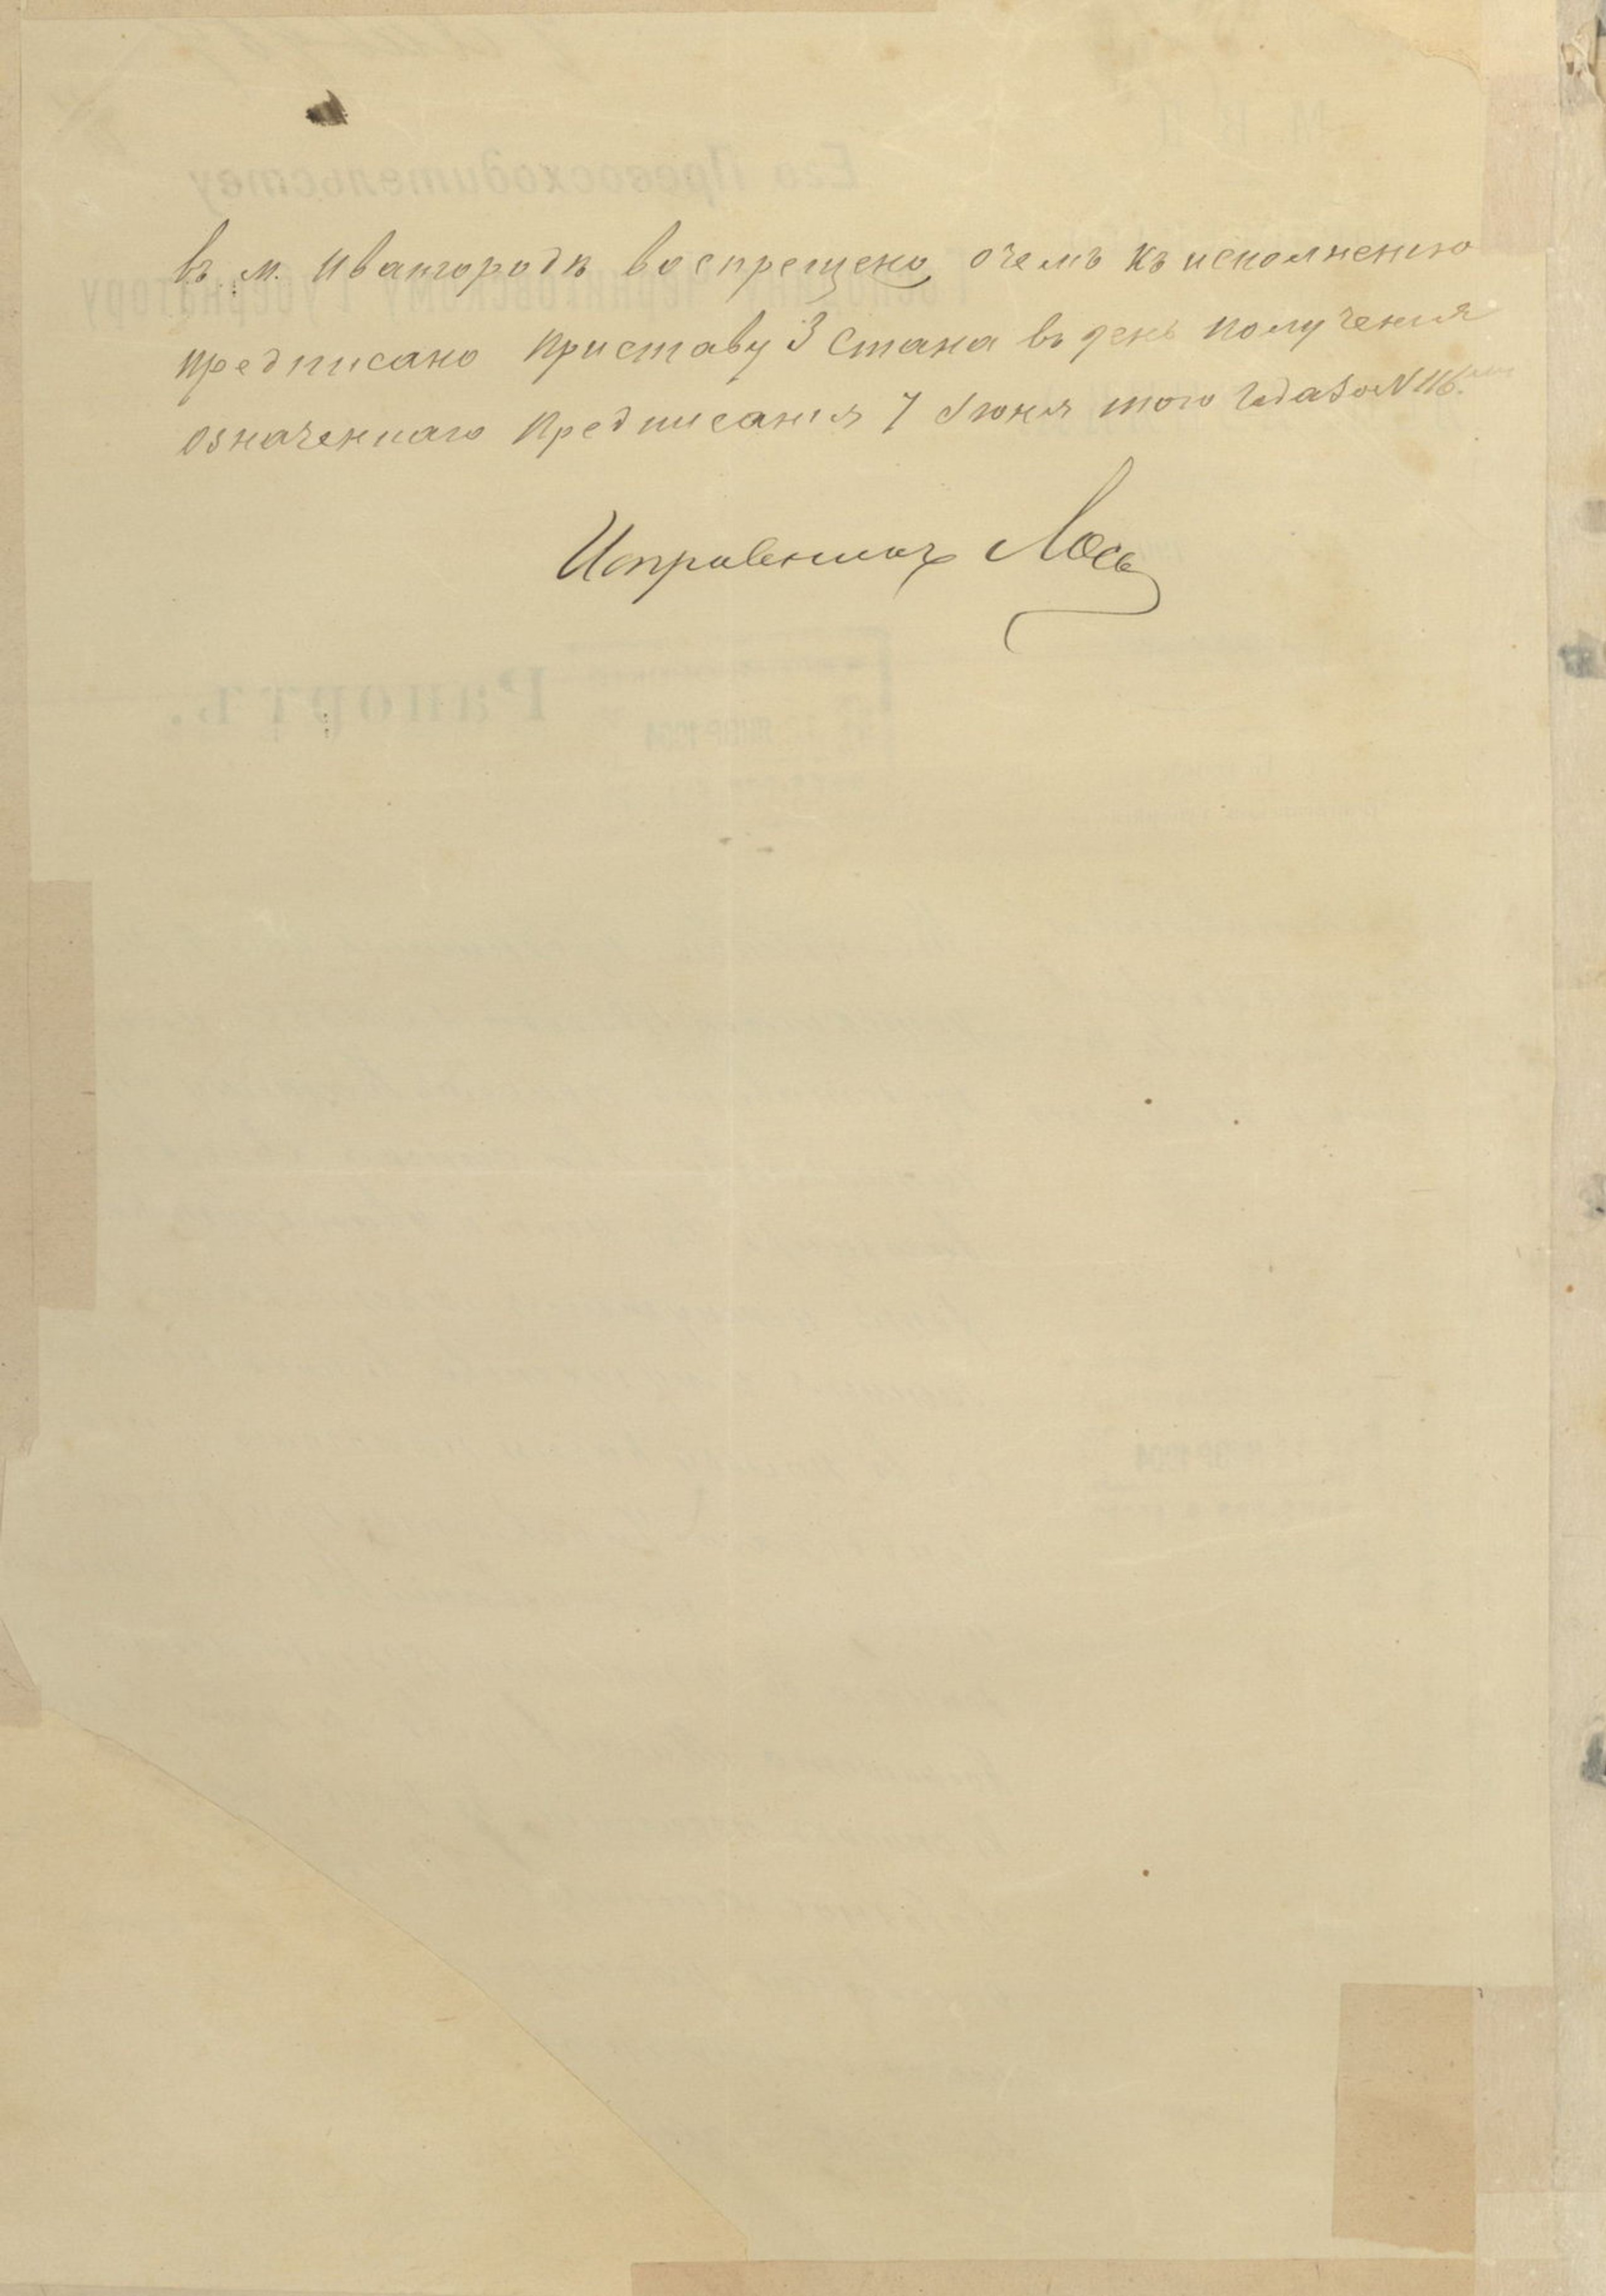 въ м. Ивангородѣ воспрещено, о чемъ къ исполненію
предписано приставу 3 стана въ день полученія
означеннаго предписанія 7 Іюня того года за № 116.
Исправникъ Лось